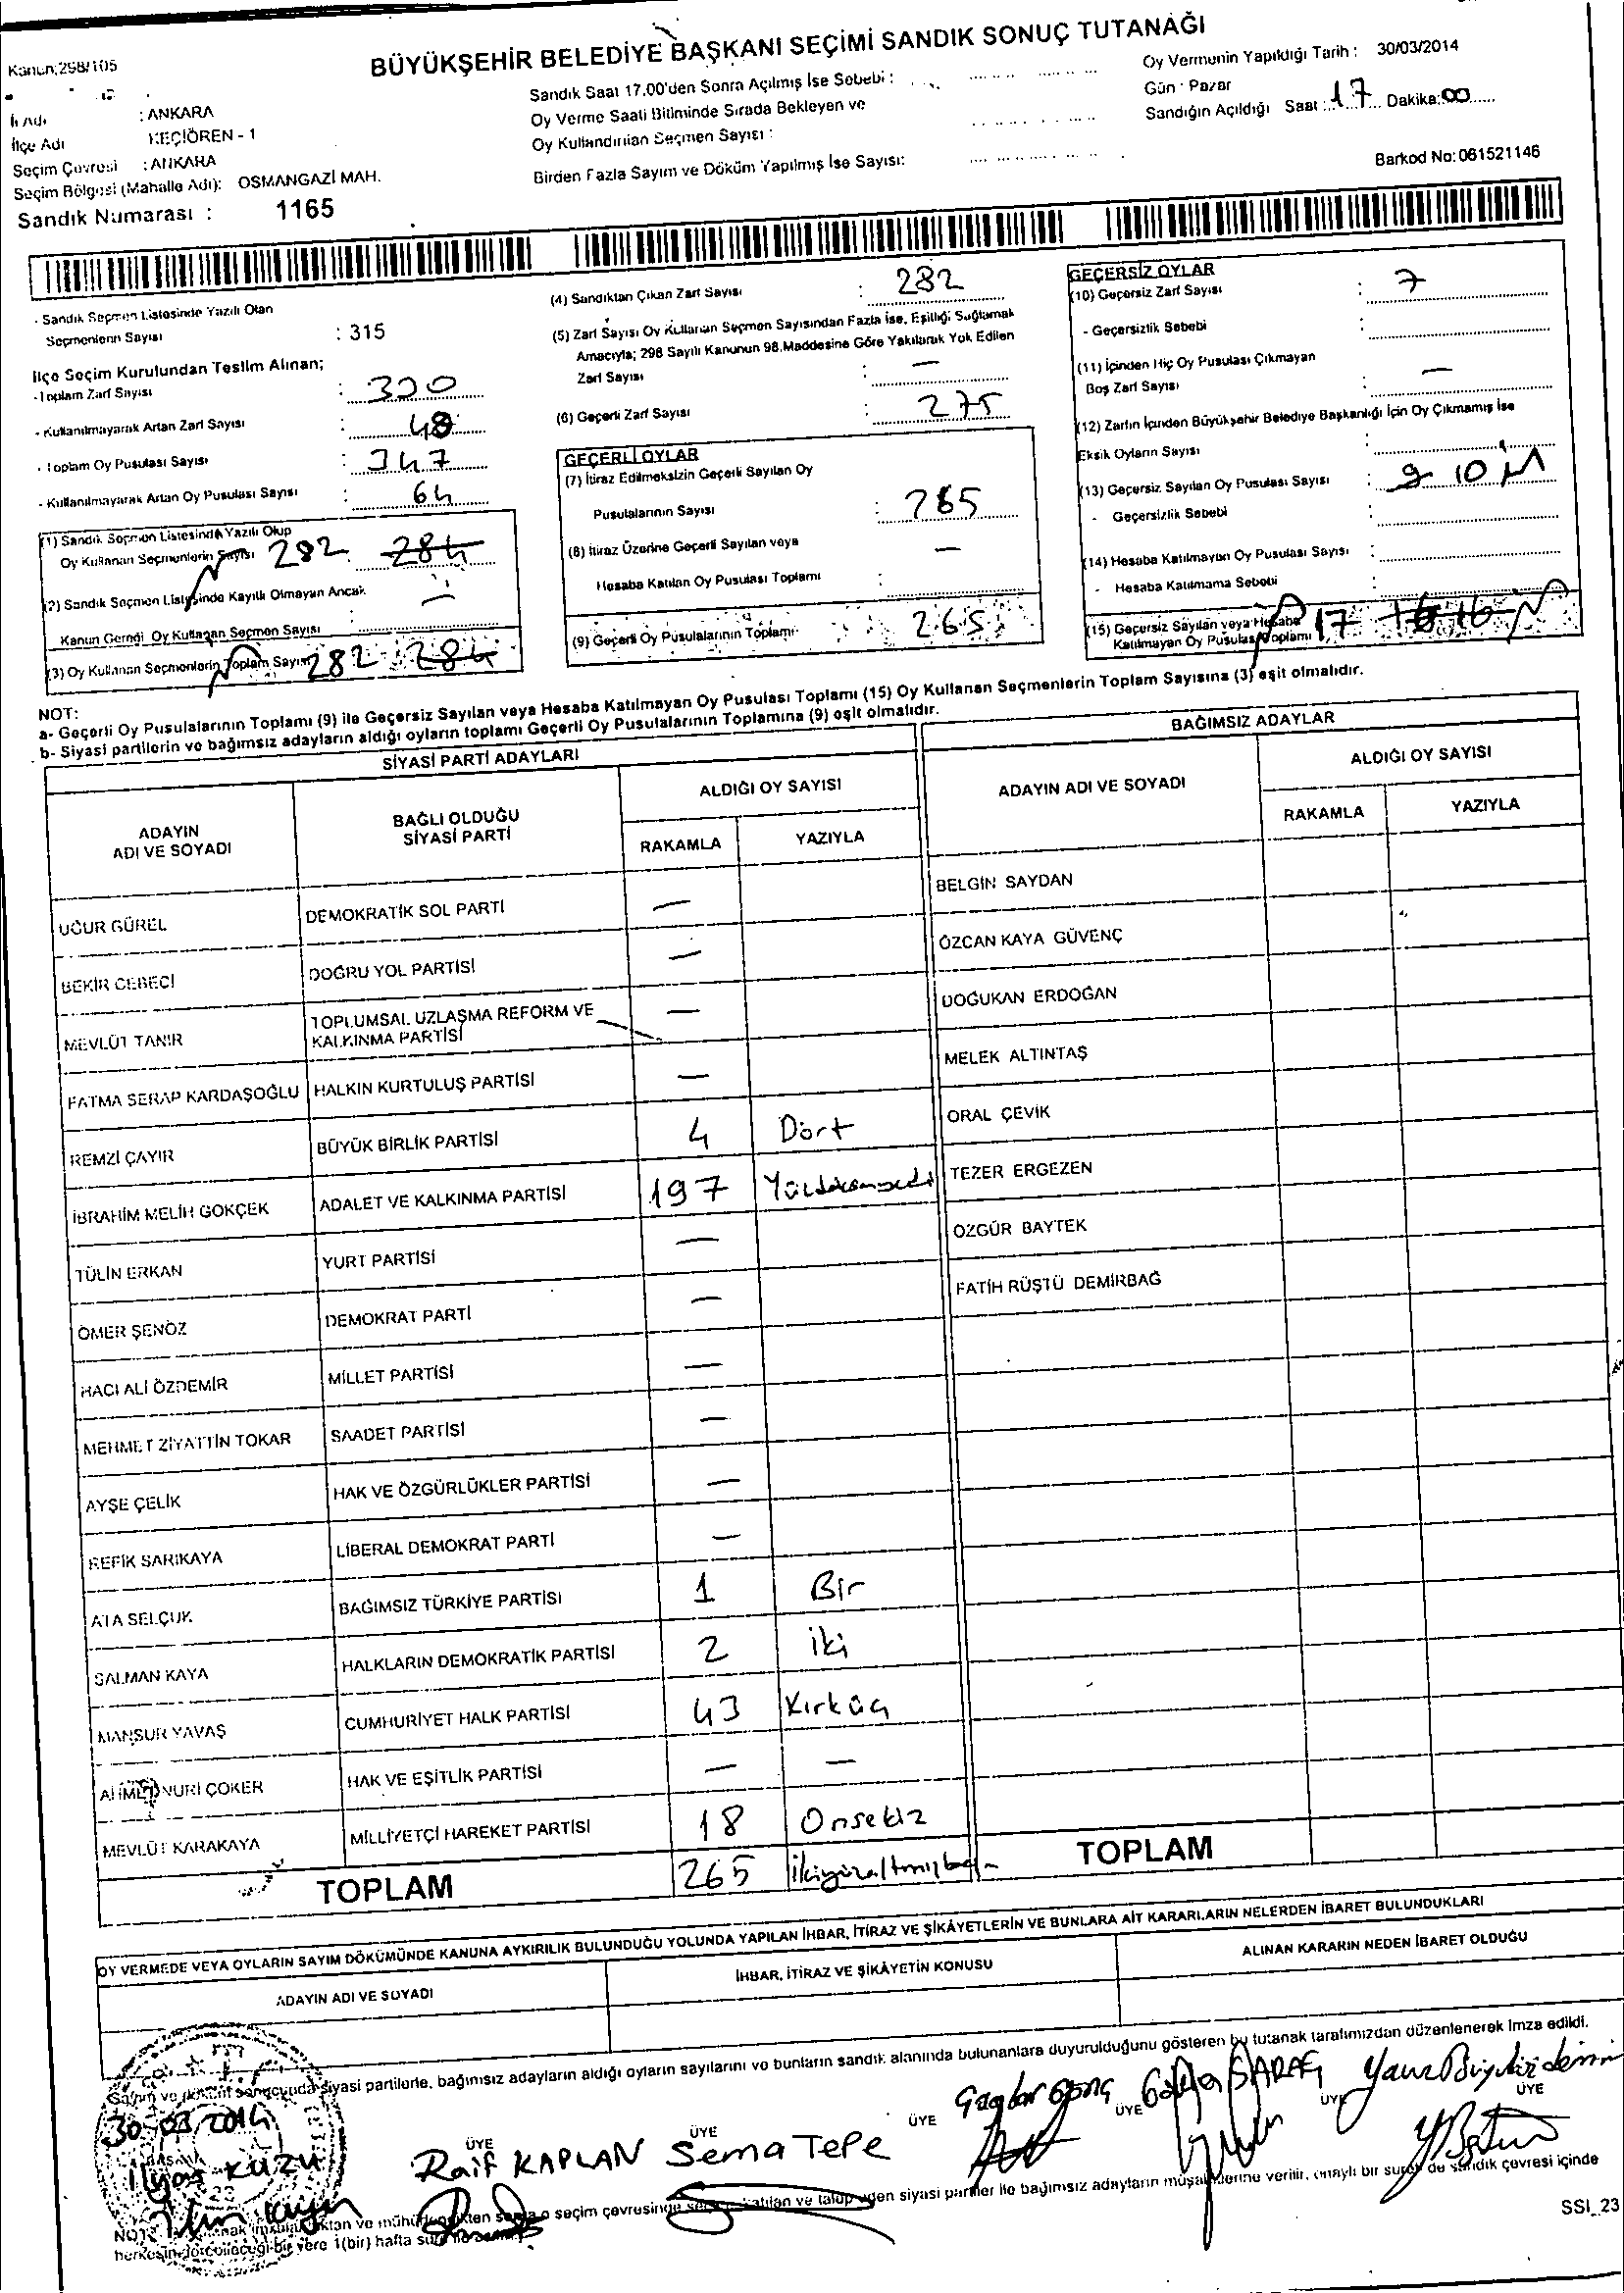 BÜYÜKŞEHİR BELEDİYE BAŞKANI SEÇİMİ SANDIK SONUÇ TUTANAĞI
Kanun:298/105
İl Adı : ANKARA
İlçe Adı KEÇİÖREN - 1
Seçim Çevresi : ANKARA
Seçim Bölgesi (Mahalle Adı): OSMANGAZİ MAH.
Sandık Numarası : 1165
Sandık Saat 17.00'den Sonra Açılmış İse Sebebi :
Oy Verme Saati Bitiminde Sırada Bekleyen ve
Oy Kullandırılan Seçmen Sayısı :
Birden Fazla Sayım ve Döküm Yapılmış İse Sayısı:
Oy Vermenin Yapıldığı Tarih : 30/03/2014
Gün : Pazar
Sandığın Açıldığı Saat : 17 Dakika: 00
Barkod No: 061521146
- Sandık Seçmen Listesinde Yazılı Olan
Seçmenlerin Sayısı : 315
İlçe Seçim Kurulundan Teslim Alınan;
- Toplam Zarf Sayısı : 330
- Kullanılmayarak Artan Zarf Sayısı : 48
- Toplam Oy Pusulası Sayısı : 347
- Kullanılmayarak Artan Oy Pusulası Sayısı : 64
(1) Sandık Seçmen Listesinde Yazılı Olup
Oy Kullanan Seçmenlerin Sayısı 282 284
(2) Sandık Seçmen Listesinde Kayıtlı Olmayan Ancak
Kanun Gereği Oy Kullanan Seçmen Sayısı : —
(3) Oy Kullanan Seçmenlerin Toplam Sayısı 282 284
(4) Sandıktan Çıkan Zarf Sayısı : 282
(5) Zarf Sayısı Oy Kullanan Seçmen Sayısından Fazla ise, Eşitliği Sağlamak
Amacıyla; 298 Sayılı Kanunun 98.Maddesine Göre Yakılarak Yok Edilen
Zarf Sayısı : —
(6) Geçerli Zarf Sayısı : 275
GEÇERLİ OYLAR
(7) İtiraz Edilmeksizin Geçerli Sayılan Oy
Pusulalarının Sayısı : 265
(8) İtiraz Üzerine Geçerli Sayılan veya
Hesaba Katılan Oy Pusulası Toplamı : —
(9) Geçerli Oy Pusulalarının Toplamı : 265
GEÇERSİZ OYLAR
(10) Geçersiz Zarf Sayısı : 7
- Geçersizlik Sebebi :
(11) İçinden Hiç Oy Pusulası Çıkmayan
Boş Zarf Sayısı : —
(12) Zarfın İçinden Büyükşehir Belediye Başkanlığı İçin Oy Çıkmamış İse
Eksik Oyların Sayısı :
(13) Geçersiz Sayılan Oy Pusulası Sayısı : 9 10
- Geçersizlik Sebebi :
(14) Hesaba Katılmayan Oy Pusulası Sayısı :
- Hesaba Katılmama Sebebi :
(15) Geçersiz Sayılan veya Hesaba
Katılmayan Oy Pusulası Toplamı : 17 16 16
NOT:
a- Geçerli Oy Pusulalarının Toplamı (9) ile Geçersiz Sayılan veya Hesaba Katılmayan Oy Pusulası Toplamı (15) Oy Kullanan Seçmenlerin Toplam Sayısına (3) eşit olmalıdır.
b- Siyasi partilerin ve bağımsız adayların aldığı oyların toplamı Geçerli Oy Pusulalarının Toplamına (9) eşit olmalıdır.
SİYASİ PARTİ ADAYLARI
ADAYIN ADI VE SOYADI
BAĞLI OLDUĞU SİYASİ PARTİ
ALDIĞI OY SAYISI
RAKAMLA YAZIYLA
UĞUR GÜREL DEMOKRATİK SOL PARTİ —
BEKİR CEBECİ DOĞRU YOL PARTİSİ —
MEVLÜT TANIR TOPLUMSAL UZLAŞMA REFORM VE KALKINMA PARTİSİ —
FATMA SERAP KARDAŞOĞLU HALKIN KURTULUŞ PARTİSİ —
REMZİ ÇAYIR BÜYÜK BİRLİK PARTİSİ 4 Dört
İBRAHİM MELİH GÖKÇEK ADALET VE KALKINMA PARTİSİ 197
TÜLİN ERKAN YURT PARTİSİ —
ÖMER ŞENÖZ DEMOKRAT PARTİ —
HACI ALİ ÖZDEMİR MİLLET PARTİSİ —
MEHMET ZİYATTİN TOKAR SAADET PARTİSİ —
AYŞE ÇELİK HAK VE ÖZGÜRLÜKLER PARTİSİ —
REFİK SARIKAYA LİBERAL DEMOKRAT PARTİ —
ATA SELÇUK BAĞIMSIZ TÜRKİYE PARTİSİ 1 Bir
SALMAN KAYA HALKLARIN DEMOKRATİK PARTİSİ 2 iki
MANSUR YAVAŞ CUMHURİYET HALK PARTİSİ 43 Kırküç
AHMET NURİ ÇOKER HAK VE EŞİTLİK PARTİSİ — —
MEVLÜT KARAKAYA MİLLİYETÇİ HAREKET PARTİSİ 18 Onsekiz
TOPLAM 265 İkiyüzaltmışbeş
BAĞIMSIZ ADAYLAR
ADAYIN ADI VE SOYADI
ALDIĞI OY SAYISI
RAKAMLA YAZIYLA
BELGİN SAYDAN
ÖZCAN KAYA GÜVENÇ
DOĞUKAN ERDOĞAN
MELEK ALTINTAŞ
ORAL ÇEVİK
TEZER ERGEZEN
ÖZGÜR BAYTEK
FATİH RÜŞTÜ DEMİRBAĞ
TOPLAM
OY VERMEDE VEYA OYLARIN SAYIM DÖKÜMÜNDE KANUNA AYKIRILIK BULUNDUĞU YOLUNDA YAPILAN İHBAR, İTİRAZ VE ŞİKÂYETLERİN VE BUNLARA AİT KARARLARIN NELERDEN İBARET BULUNDUKLARI
ADAYIN ADI VE SOYADI
İHBAR, İTİRAZ VE ŞİKÂYETİN KONUSU
ALINAN KARARIN NEDEN İBARET OLDUĞU
Sayım ve döküm sonucunda siyasi partilerle, bağımsız adayların aldığı oyların sayılarını ve bunların sandık alanında bulunanlara duyurulduğunu gösteren bu tutanak tarafımızdan düzenlenerek imza edildi.
30.03.2014
İlyas KUZU
ÜYE Raif KAPLAN
ÜYE Sema TEPE
ÜYE Çağlar
ÜYE
ÜYE Yavuz
ÜYE
seçim çevresinde katılan ve talep eden siyasi partiler ile bağımsız adayların müşahitlerine verilir, onaylı bir sureti de sandık çevresi içinde
yere 1(bir) hafta
SSİ_23